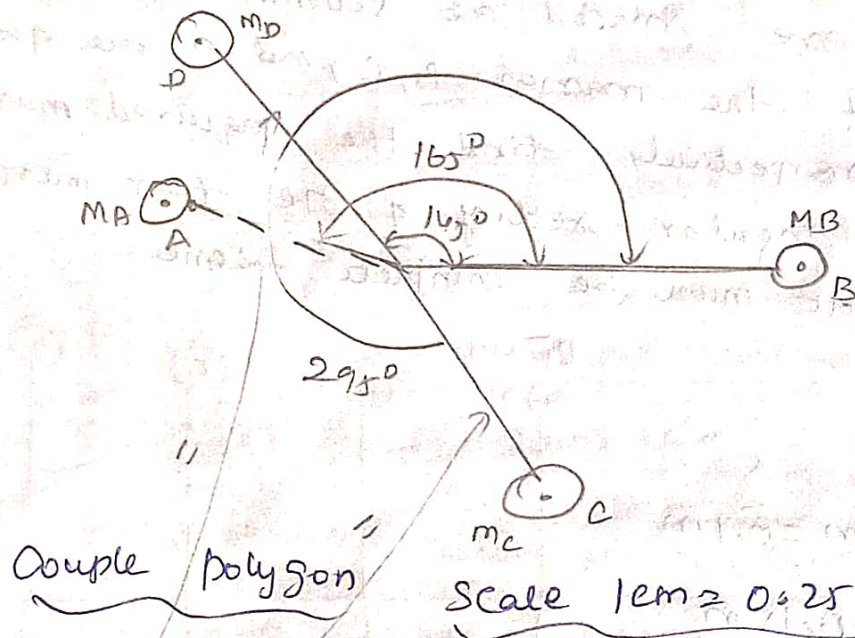 MD
D
165°
MA
A
145°
MB
B
295°
"
"
mc
C
Couple polygon
Scale 1cm = 0.25